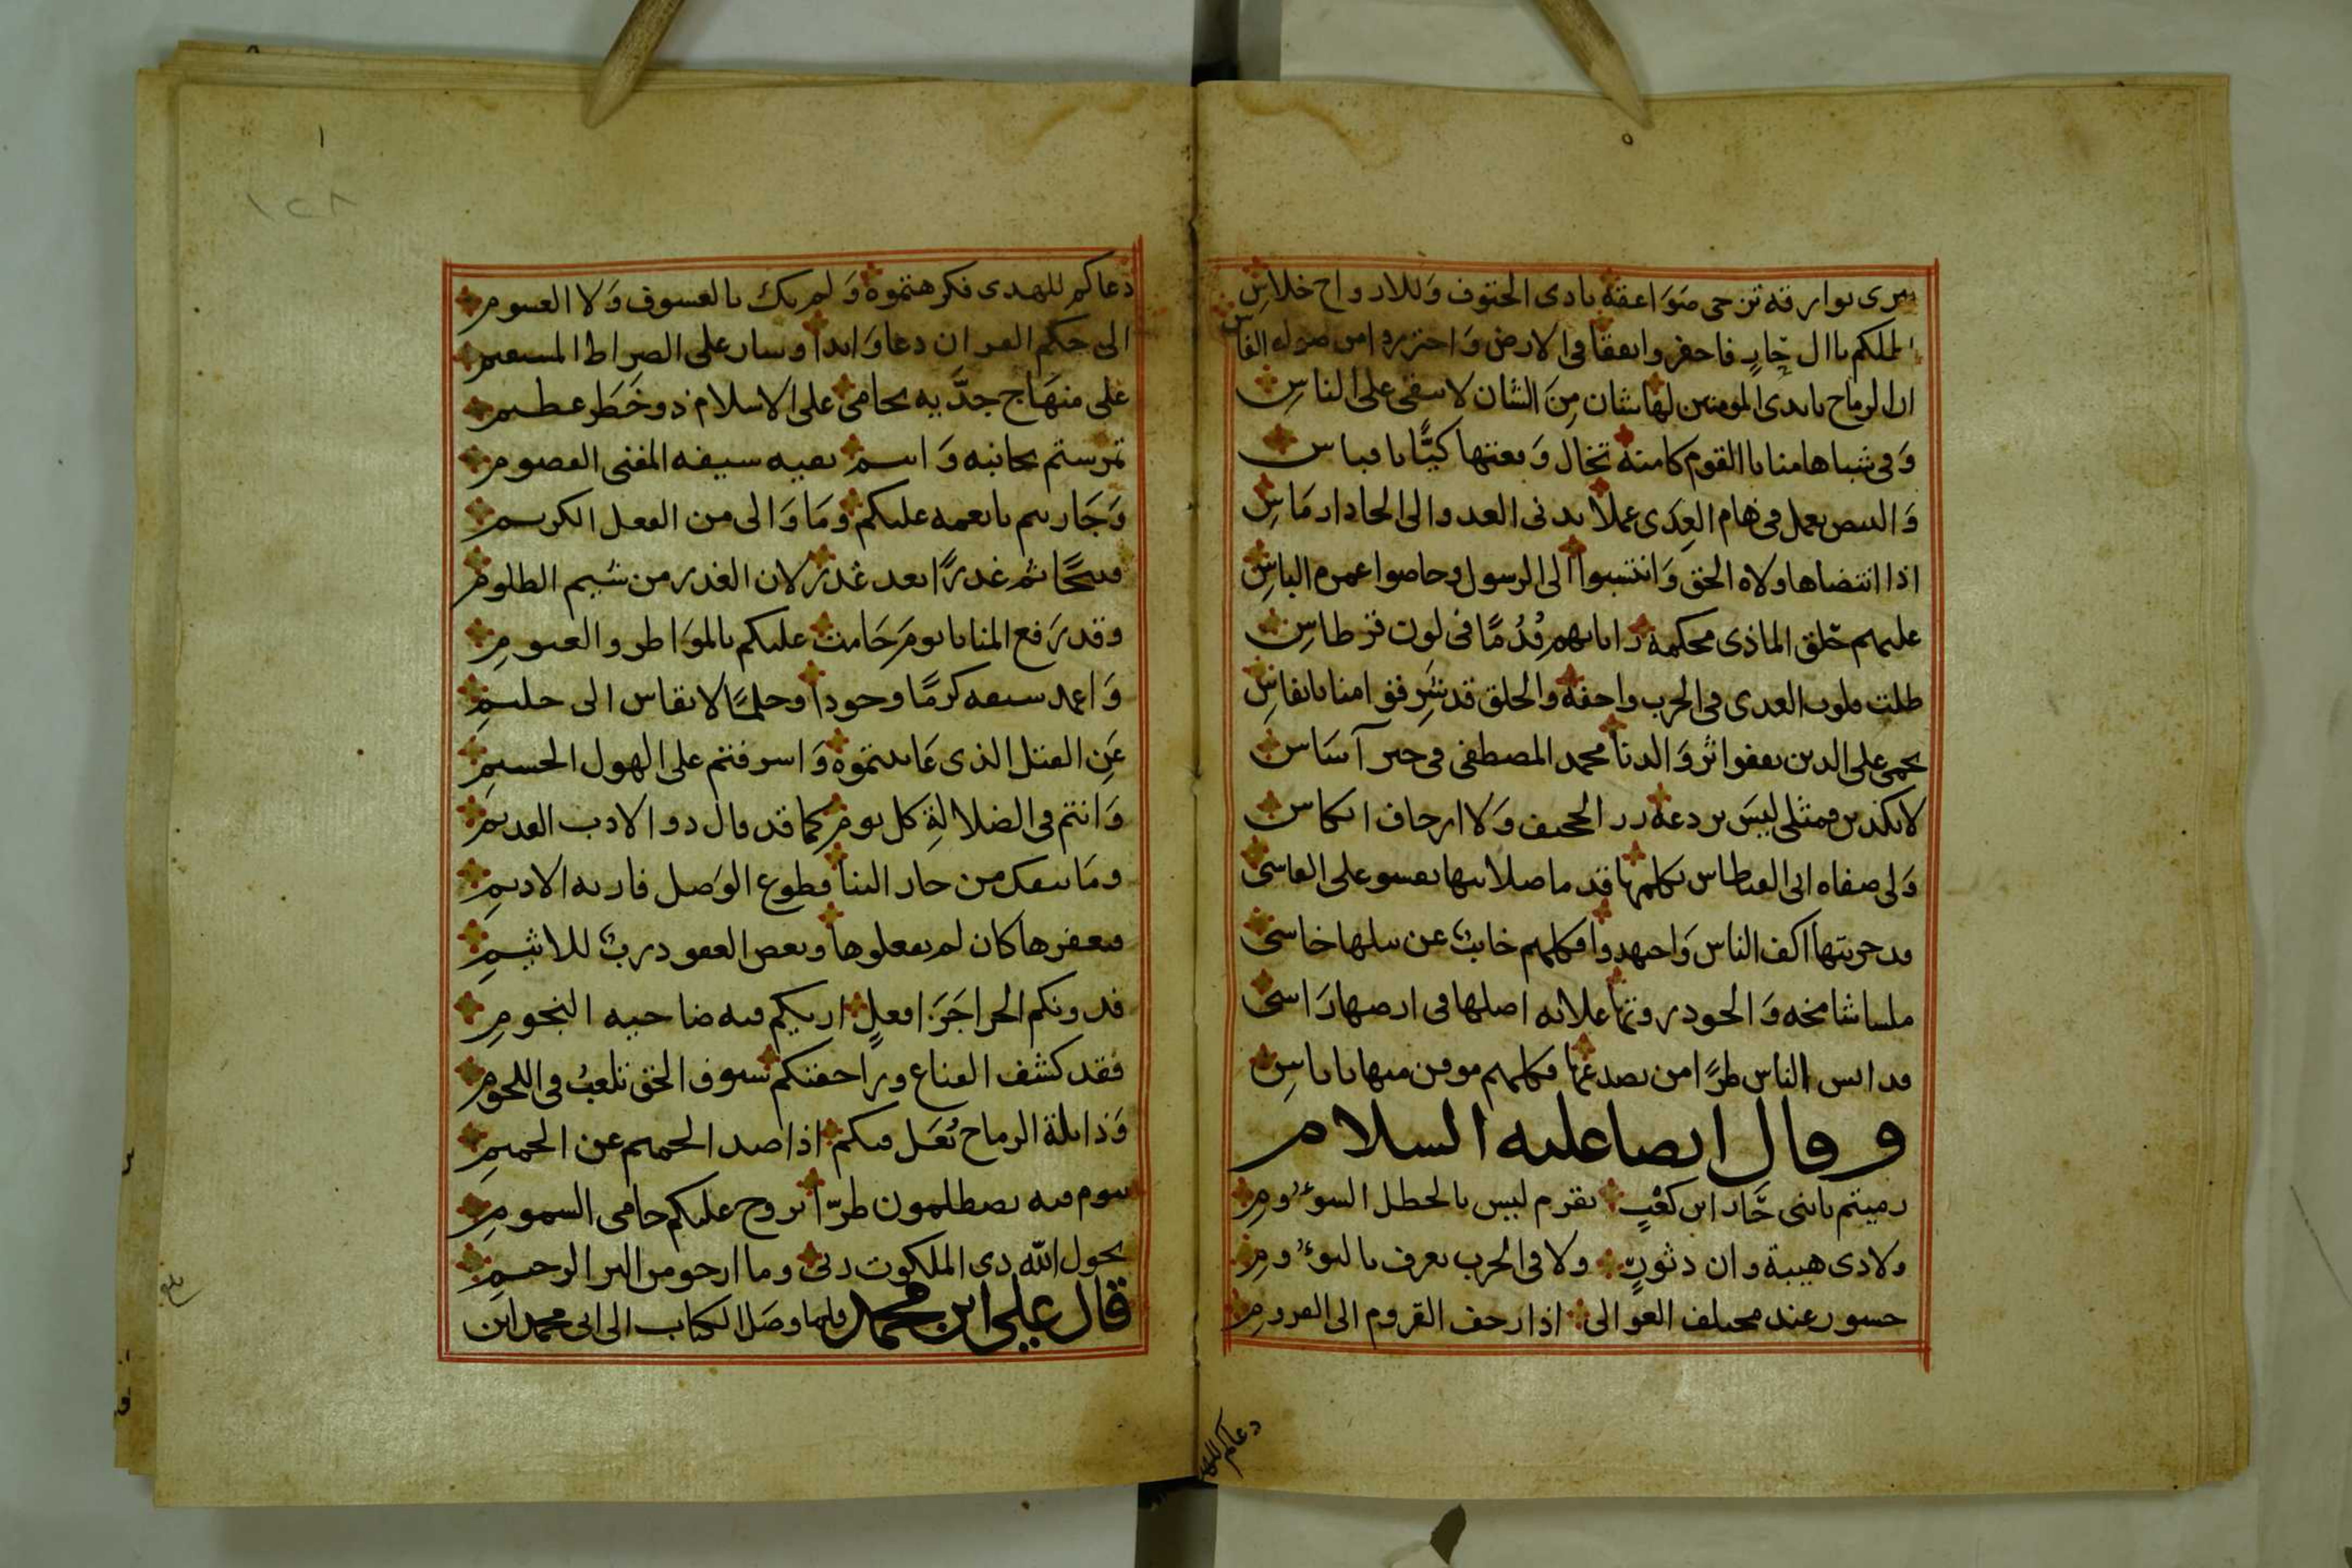 سرى بوارقه تزجى صَوَاعقه بادى الحتوف وَللارواح خلاسِ
املكم ياال حَارٍ فاحفروا نفقا فى الارض وَاحترزوا من صوله الفاس
ان الرماح بايدى المومنين لها شان مِنَ الشان لا يبقى على الناسِ
وَفى شباها منايا القوم كامنة تخال وَقعتها كيًّا باقباس
وَالبيض يعمل فى هَام العِدَى عملًا يدنى العدو الى الحاد ارمَاسِ
اذا انتضاها ولاه الحق وَانتسبوا الى الرسول وخاضوا غمرة الباسِ
عليهم حَلق الماذى محكمة راياتهم قُدُمًا فى لون قرطاسِ
ظلت قلوب العدى فى الحرب واجفة والحلق قد شَرِقوا منا بانفاسِ
يحمى على الدين يقفوا اثر وَالدنا محمد المصطفى فى خير آسَاس
لا تكذبن فمثلى ليسَ يردعه رد الححيف وَلا ارجاف انكاس
وَلى صفاه ابى القباطاس تكلمها قدما صلابتها تقسو على القاسى
قد جربتها اكف الناس وَاجهدوا فكلهم خايبٌ عن نيلها خاسى
ملسا شامخه وَالجود رونقها علانه اصلها فى ارضها رَاسى
قد ايس الناس طرًا من تصدعها فكلهم موقن منها باياسِ
وقال ايضا عليه السلام
رميتم يابنى حَار ابن كعْبٍ بقرم ليس بالحطل السوءُومِ
ولا ذى هيبة وان دثورٍ ولا فى الحرب يعرف بالنوءُومِ
جسور عند مختلف العوالى اذا زحف القروم الى القرومِ
دعاكم للهد
دعاكم للهدى فكرهتموه وَلم يك بالعسوف وَلا الغشوم
الى حكم القران دعا وَابدا وسار على الصراط المستقيم
على منهَاج جدَّيه يحامى على الاسلام ذو خَطَرٍ عظيم
تمرستم بجانبه وَانتم بغيه سيفه المفنى الغصوم
وَجَاريتم بانعمه عليكم ومَا وَالى من الفعل الكريم
فبحًا ثم غدرًا بعد غدر لان الغدر من شيم الظلوم
وقد رَفع المنايا يومَ حَامت عليكم بالموَاطر والغيومِ
وَاغمد سيفه كرمًا وجودا وحلمًا لا يقاس الى حليمِ
عَنِ القتل الذى عَاينتموه وَاسرفتم على الهول الجسيمِ
وَانتم فى الضلالةِ كل يوم كما قد قال ذوا الادب القديمِ
ومَا ينفك من جار الينا قطوع الوَصل فاريه الاديمِ
فيعفرها كان لم يفعلوها وبعض العفو درب للاثيمِ
فدونكم الحرا جَرَا فعلٍ اريكم فيه ضاحيه النجومِ
فقد كشف القناع وراحفتكم سيوف الحق تلعبُ فى اللحومِ
وَذابلة الرماح تُعَل فيكم اذا صد الحميم عن الحميمِ
بيوم فيه تصطلمون طرّا تروح عليكم حامى السمومِ
بحول اللّه ذى الملكوت ربى وما ارجو من البر الرحيمِ
قال على ابن محمد فلما وصل الكتاب الى ابى محمد ابن
١٢٨
بلغ